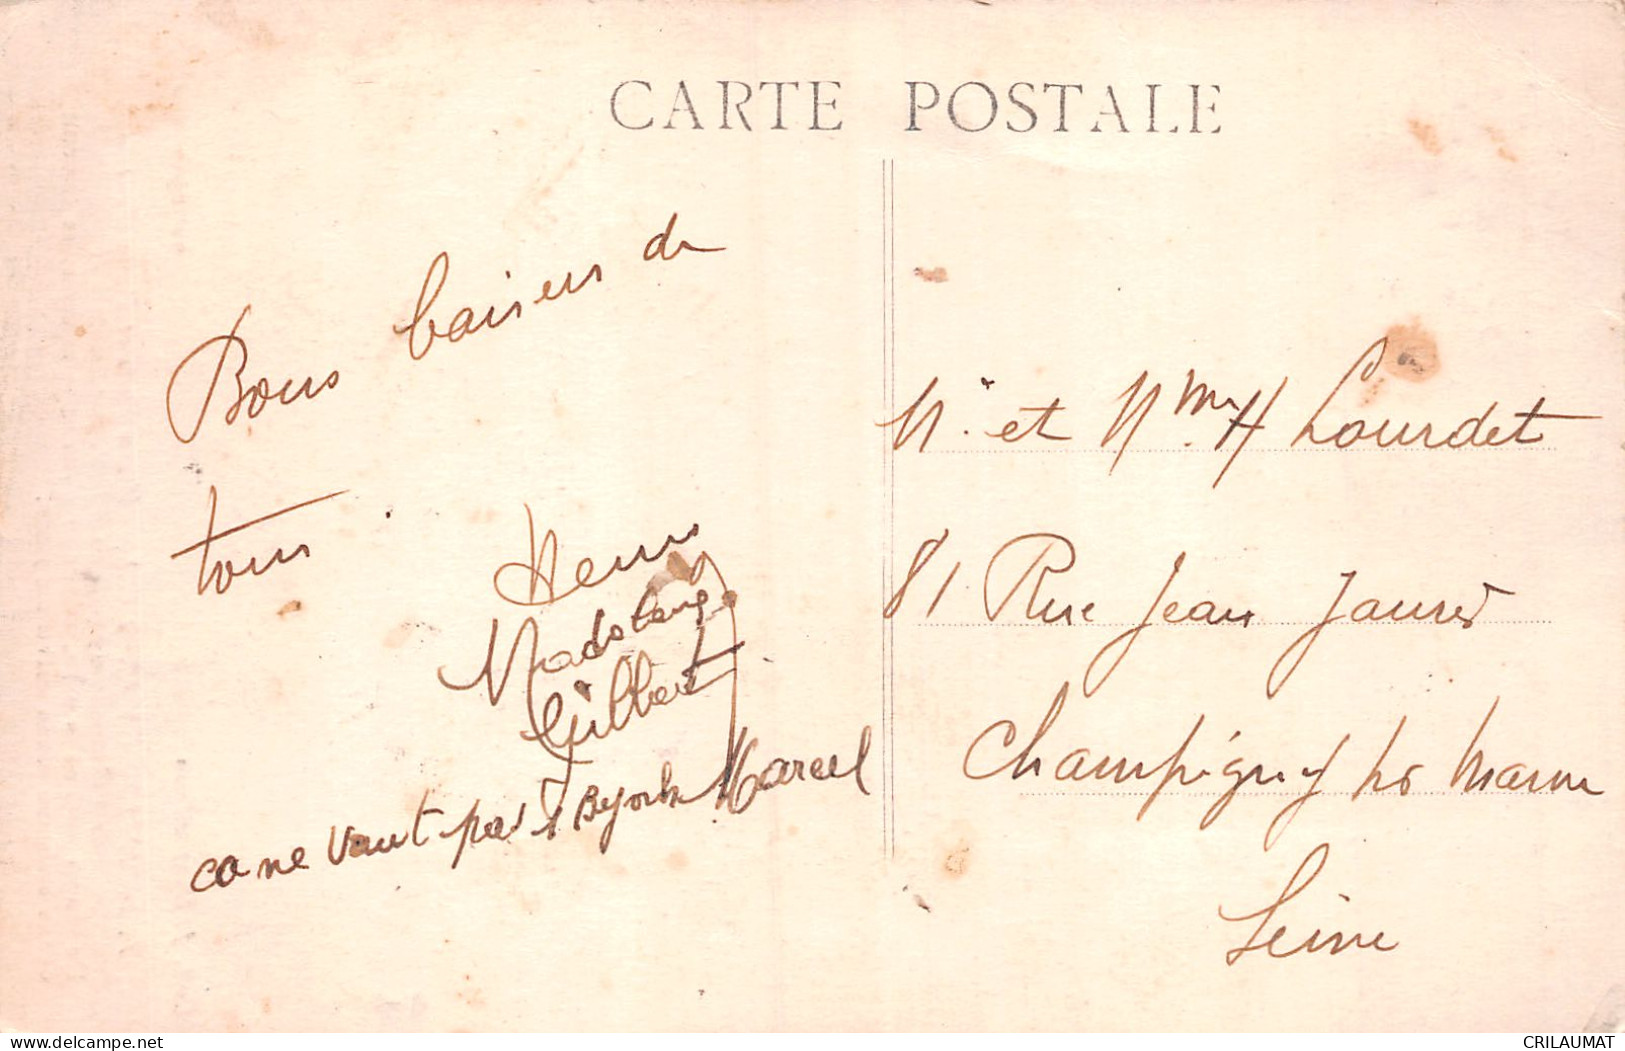 CARTE POSTALE
Bons baisers de
tous.
Henri
Gilbert
Marcel
ca ne vaut pas
Mr et Mme H Lourdet
81 Rue Jean Jaurès
Champigny s/ Marne
Seine
www.delcampe.net
CRILAUMAT